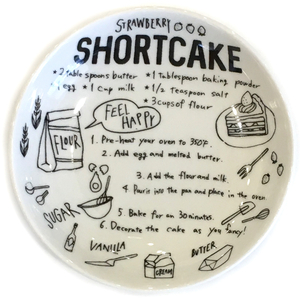 STRAWBERRY
SHORTCAKE
*2 table spoons butter *1 tablespoon baking powder
*1 egg *1 cup milk *1/2 teaspoon salt
*3 cups of flour
FEEL
HAPPY
FLOUR
1. Pre-heat your oven to 350F.
2. Add egg and melted butter.
3. Add the flour and milk.
4. Pour is into the pan and place in the oven
5. Bake for an 30 minutes.
6. Decorate the cake as you fancy!
SUGAR
VANILLA
CREAM
BUTTER